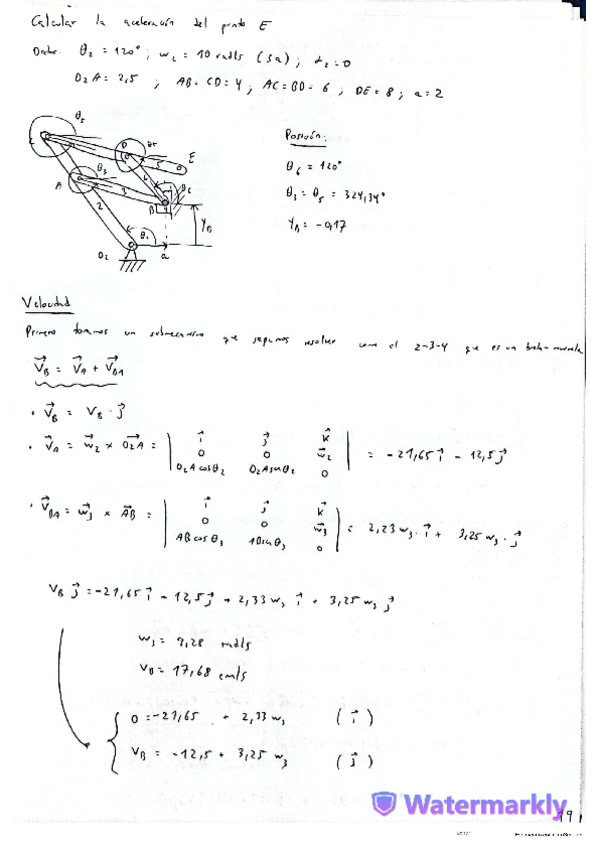 Calcular la aceleración del punto E
Datos: θ₂ = 120° ; w₂ = 10 rad/s (sa) ; α₂ = 0
O₂A = 2,5 ; AB = CD = 4 ; AC = BD = 6 ; DE = 8 ; a = 2
θ₅
D
θ₅
E
5
C
A
θ₃
3
B
θ₆
2
θ₂
Y_B
O₂
a
Posición:
θ₆ = 120°
θ₃ = θ₅ = 324,34°
Y_B = -0,17
Velocidad
Primero tomamos un submecanismo que sepamos resolver como el 2-3-4 que es un biela-manivela
V⃗_B = V⃗_A + V⃗_BA
· V⃗_B = V_B · j⃗
· V⃗_A = w⃗₂ × O₂A⃗ = | i⃗ j⃗ k⃗ |
0 0 w⃗₂ = -21,65 i⃗ - 12,5 j⃗
O₂A cosθ₂ O₂A sinθ₂ 0
· V⃗_BA = w⃗₃ × AB⃗ = | i⃗ j⃗ k⃗ |
0 0 w⃗₃ = 2,23 w₃ · i⃗ + 3,25 w₃ · j⃗
AB cosθ₃ AB sinθ₃ 0
V_B j⃗ = -21,65 i⃗ - 12,5 j⃗ + 2,33 w₃ i⃗ + 3,25 w₃ j⃗
w₃ = 9,28 rad/s
V_B = 17,68 cm/s
0 = -21,65 + 2,33 w₃ (i⃗)
V_B = -12,5 + 3,25 w₃ (j⃗)
Watermarkly